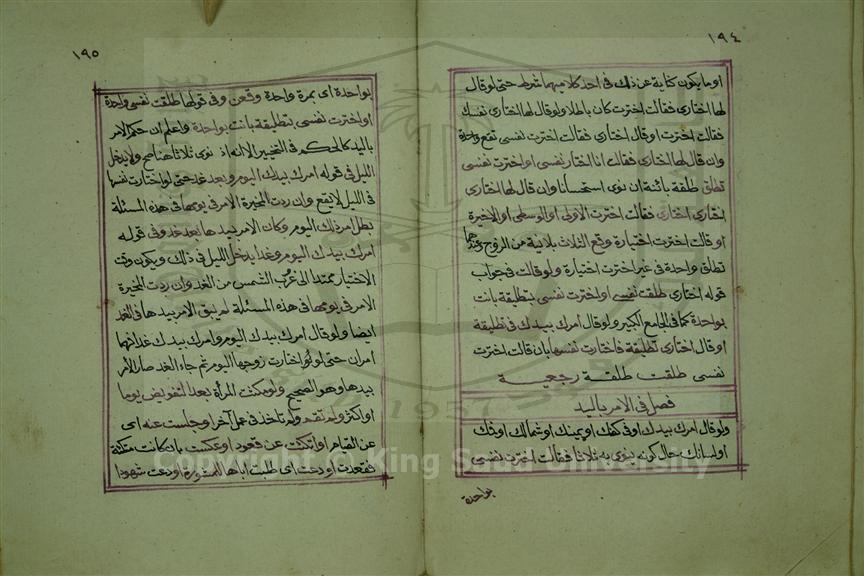 ١٩٤
او ما يكون كناية عن ذلك فى احد كلاميهما شرط حتى لو قال
لها اختارى فقالت اخترت كان باطلا ولو قال لها اختارى نفسك
فقالت اخترت او قال اختارى فقالت اخترت نفسى تقع واحدة
وان قال لها اختارى فقالت انا اختار نفسى او اخترت نفسى
تطلق طلقة بائنة ان نوى استحسانا وان قال لها اختارى
اختارى اختارى فقالت اخترت الاولى او الوسطى او الاخيرة
او قالت اخترت اختيارة وقع الثلاث بلا نية من الزوج وعندهما
تطلق واحدة فى غير اخترت اختيارة ولو قالت فى جواب
قوله اختارى طلقت نفسى او اخترت نفسى بتطليقة بانت
بواحدة كما فى الجامع الكبير ولو قال امرك بيدك فى تطليقة
او قال اختارى تطليقة فاختارت نفسها بان قالت اخترت
نفسى طلقت طلقة رجعية
فصل فى الامر باليد
ولو قال امرك بيدك او فى كفك او يمينك او شمالك او فمك
او لسانك حال كونه ينوى به ثلاثا فقالت اخترت نفسى
بواحدة
١٩٥
بواحدة اى بمرة واحدة وقعن وفى قولها طلقت نفسى واحدة
او اخترت نفسى بتطليقة بانت بواحدة واعلم ان حكم الامر
باليد كالحكم فى التخيير الا انه اذ نوى ثلاثا هنا صح ولا يدخل
الليل فى قوله امرك بيدك اليوم وبعد غد حتى لو اختارت نفسها
فى الليل لا يقع وان ردت المخيرة الامر فى يومها فى هذه المسئلة
بطل امر ذلك اليوم وكان الامر بيدها بعد غد وفى قوله
امرك بيدك اليوم وغدا يدخل الليل فى ذلك ويكون وقت
الاختيار ممتدا الى غرب الشمس من الغد وان ردت المخيرة
الامر فى يومها فى هذه المسئلة لم يبق الامر بيدها فى الغد
ايضا ولو قال امرك بيدك اليوم وامرك بيدك غدا فهما
امران حتى لو اختارت زوجها اليوم ثم جاء الغد صار الامر
بيدها وهو الصحيح ولو مكثت المرأة بعد التفويض يوما
او اكثر ولم تقم ولم تأخذ فى عمل آخر او جلست عنه اى
عن القيام او اتكئت عن قعود او عكست بان كانت متكئة
فقعدت او دعت اى طلبت اباها للمشورة او دعت شهودا
Copyright © King Saud University
1957